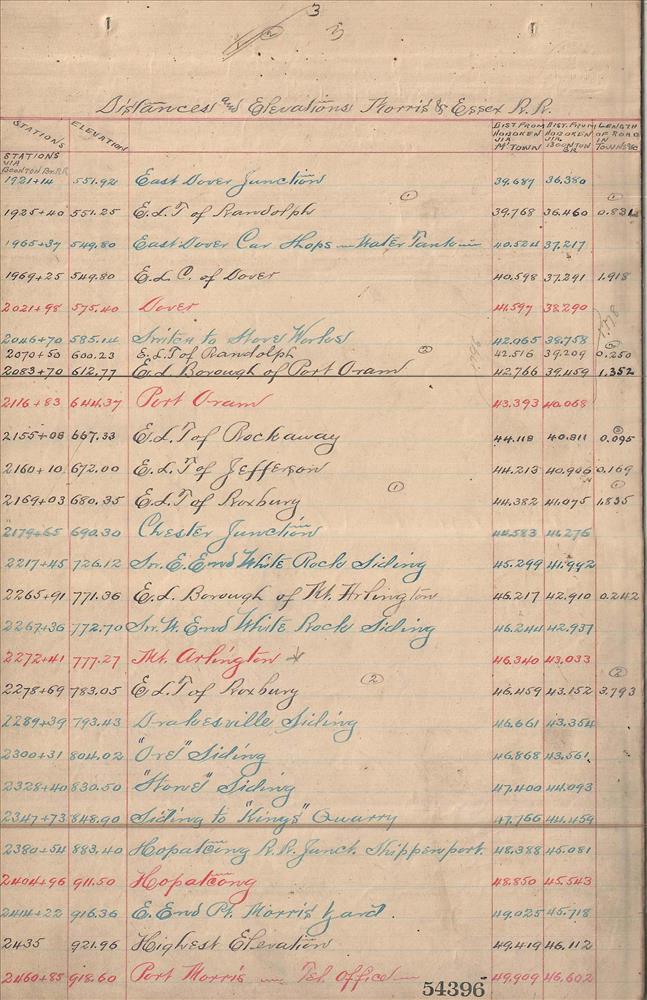 3
3
Distances and Elevations Morris & Essex R.R.
STATIONS ELEVATION DIST FROM HOBOKEN VIA M'TOWN DIST. FROM HOBOKEN VIA BOONTON BR. LENGTH OF ROAD IN TOWNS &C
STATIONS VIA BOONTON BR.RR
1921+14 551.92 East Dover Junction 39.687 36.380
1925+40 551.25 E.L.T of Randolph (1) 39.768 36.460 (1) 0.831
1965+37 549.80 East Dover Car Shops — Water Tank — 40.524 37.217
1969+25 549.80 E.L.C. of Dover 40.598 37.291 1.918
2021+98 575.40 Dover 41.597 38.290
2046+70 585.14 Switch to Stove Works 42.065 38.758
2070+50 600.23 E.L.T of Randolph (2) 42.516 39.209 (2) 0.250
2083+70 612.77 E.L. Borough of Port Oram 42.766 39.459 1.352
2116+83 644.37 Port Oram 43.393 40.068
2155+08 667.33 E.L.T of Rockaway 44.118 40.811 (3) 0.095
2160+10 672.00 E.L.T of Jefferson 44.213 40.906 0.169
2169+03 680.35 E.L.T of Roxbury (1) 44.382 41.075 (1) 1.835
2179+65 690.30 Chester Junction 44.583 41.276
2217+45 726.12 Sw. E. End White Rock Siding 45.299 41.992
2265+91 771.36 E.L. Borough of Mt. Arlington 46.217 42.910 0.242
2267+36 772.70 Sw. W. End White Rock Siding 46.244 42.937
2272+41 777.27 Mt. Arlington 46.340 43.033
2278+69 783.05 E.L.T of Roxbury (2) 46.459 43.152 (2) 3.793
2289+39 793.43 Drakesville Siding 46.661 43.354
2300+31 804.02 "Ore" Siding 46.868 43.561
2328+40 830.50 "Stone" Siding 47.400 44.093
2347+73 848.90 Siding to "Kings" Quarry 47.766 44.459
2380+54 883.40 Hopatcong R.R. Junct. Shippenport. 48.388 45.081
2404+96 911.50 Hopatcong 48.850 45.543
2414+22 916.36 E. End Pt. Morris Yard. 49.025 45.718
2435 921.96 Highest Elevation 49.419 46.112
2460+85 918.60 Port Morris — Tel. Office — 49.909 46.602
54396